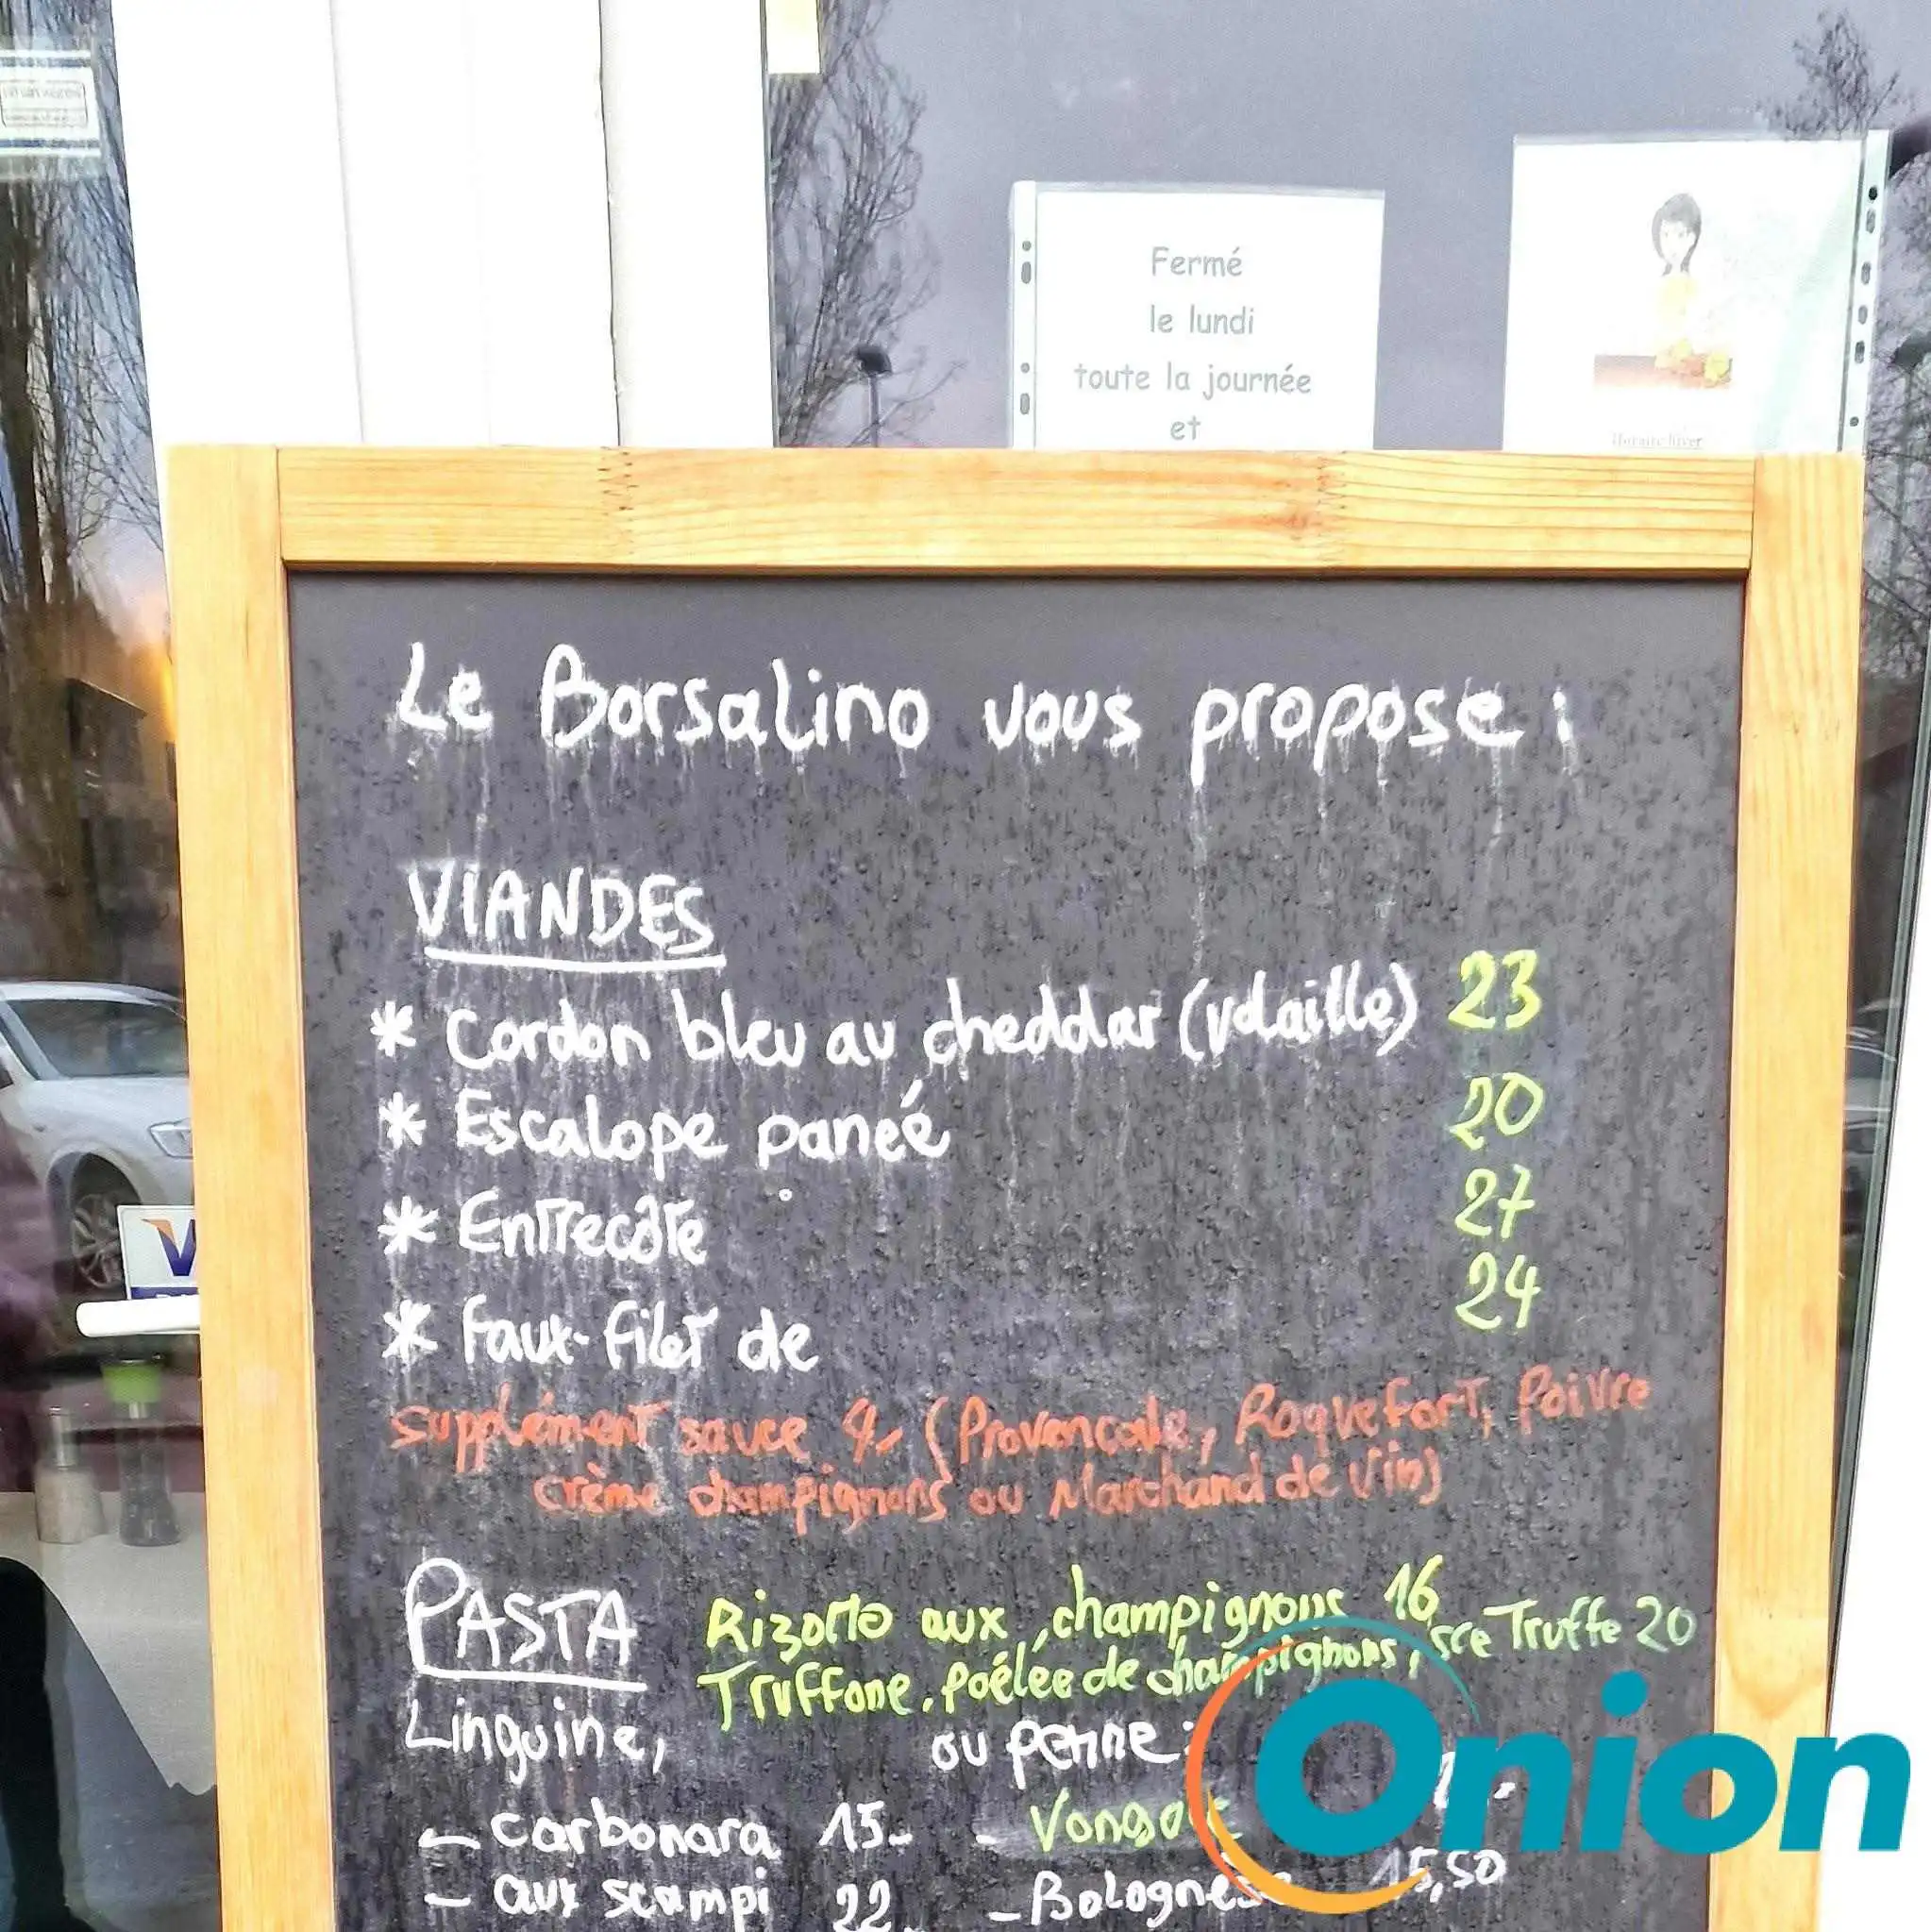 Fermé
le lundi
toute la journée
et
Horaire hiver
Le Borsalino vous propose :
VIANDES
* Cordon bleu au cheddar (volaille) 23
* Escalope paneé 20
* Entrecôte 27
* Faux-filet de 24
supplément sauce 4,- (Provençale, Roquefort, Poivre
crème champignons ou Marchand de Vin)
PASTA
Rizotto aux champignons 16
Truffone, Poêlée de champignons, sce Truffe 20
Linguine, ou penne :
- carbonara 15.-
- Vongole
- aux scampi 22
- Bolognese 15,50
Onion